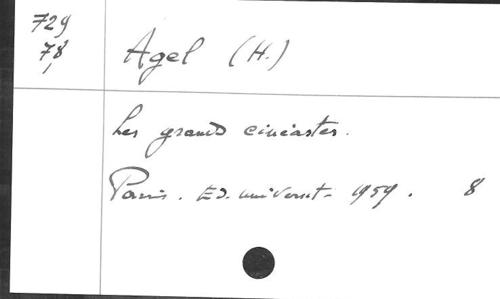 729
7,8
Agel (H.)
Les grands cinéastes.
Paris. Ed. universit. 1959. 8